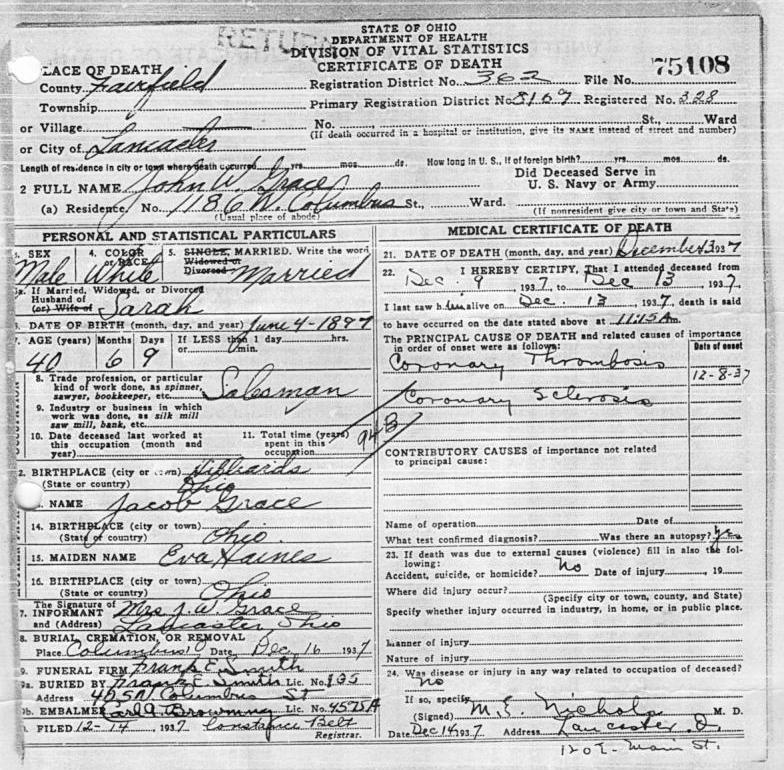 STATE OF OHIO
DEPARTMENT OF HEALTH
RETURN
DIVISION OF VITAL STATISTICS
CERTIFICATE OF DEATH
75108
LACE OF DEATH
County Fairfield
Registration District No. 362 File No.
Township
Primary Registration District No. 8167 Registered No. 328
or Village
No. St., Ward
(If death occurred in a hospital or institution, give its NAME instead of street and number)
or City of Lancaster
Length of residence in city or town where death occurred yrs. mos. ds. How long in U. S., if of foreign birth? yrs. mos. ds.
Did Deceased Serve in
U. S. Navy or Army
2 FULL NAME John W. Grace
(a) Residence. No. 1186 W. Columbus St., Ward.
(Usual place of abode) (If nonresident give city or town and State)
PERSONAL AND STATISTICAL PARTICULARS
3. SEX Male
4. COLOR or RACE White
5. SINGLE, MARRIED. Write the word
Widowed or
Divorced Married
5a. If Married, Widowed, or Divorced
Husband of
(or) Wife of Sarah
6. DATE OF BIRTH (month, day, and year) June 4-1897
7. AGE (years) Months Days If LESS than 1 day hrs.
40 6 9 or min.
OCCUPATION
8. Trade profession, or particular
kind of work done, as spinner,
sawyer, bookkeeper, etc. Salesman
9. Industry or business in which
work was done, as silk mill
saw mill, bank, etc.
10. Date deceased last worked at
this occupation (month and
year)
11. Total time (years)
spent in this
occupation
94B
2. BIRTHPLACE (city or town) Hilliards
(State or country) Ohio
3. NAME Jacob Grace
14. BIRTHPLACE (city or town)
(State or country) Ohio
15. MAIDEN NAME Eva Haines
16. BIRTHPLACE (city or town)
(State or country) Ohio
The Signature of
7. INFORMANT Mrs J. W. Grace
and (Address) Lancaster Ohio
8. BURIAL, CREMATION, OR REMOVAL
Place Columbus O Date Dec 16 1937
9. FUNERAL FIRM Frank E. Smith
9a. BURIED BY Frank E Smith Lic. No. 135
Address 405 N. Columbus St
9b. EMBALMER Carl A. Browning Lic. No. 4575A
FILED 12-14, 1937 Constance Belt
Registrar.
MEDICAL CERTIFICATE OF DEATH
21. DATE OF DEATH (month, day, and year) December 13 1937
22. I HEREBY CERTIFY, That I attended deceased from
Dec. 9, 1937, to Dec 13, 1937.
I last saw him alive on Dec. 13, 1937, death is said
to have occurred on the date stated above at 11:15 A m.
The PRINCIPAL CAUSE OF DEATH and related causes of importance
in order of onset were as follows:
Date of onset
Coronary Thrombosis
12-8-37
Coronary Sclerosis
CONTRIBUTORY CAUSES of importance not related
to principal cause:
Name of operation Date of
What test confirmed diagnosis? Was there an autopsy? Yes
23. If death was due to external causes (violence) fill in also the fol-
lowing:
Accident, suicide, or homicide? No Date of injury , 19
Where did injury occur?
(Specify city or town, county, and State)
Specify whether injury occurred in industry, in home, or in public place.
Manner of injury
Nature of injury
24. Was disease or injury in any way related to occupation of deceased?
No
If so, specify
(Signed) M. E. Nichols M. D.
Date Dec 14, 1937 Address Lancaster O.
120 E. Main St.